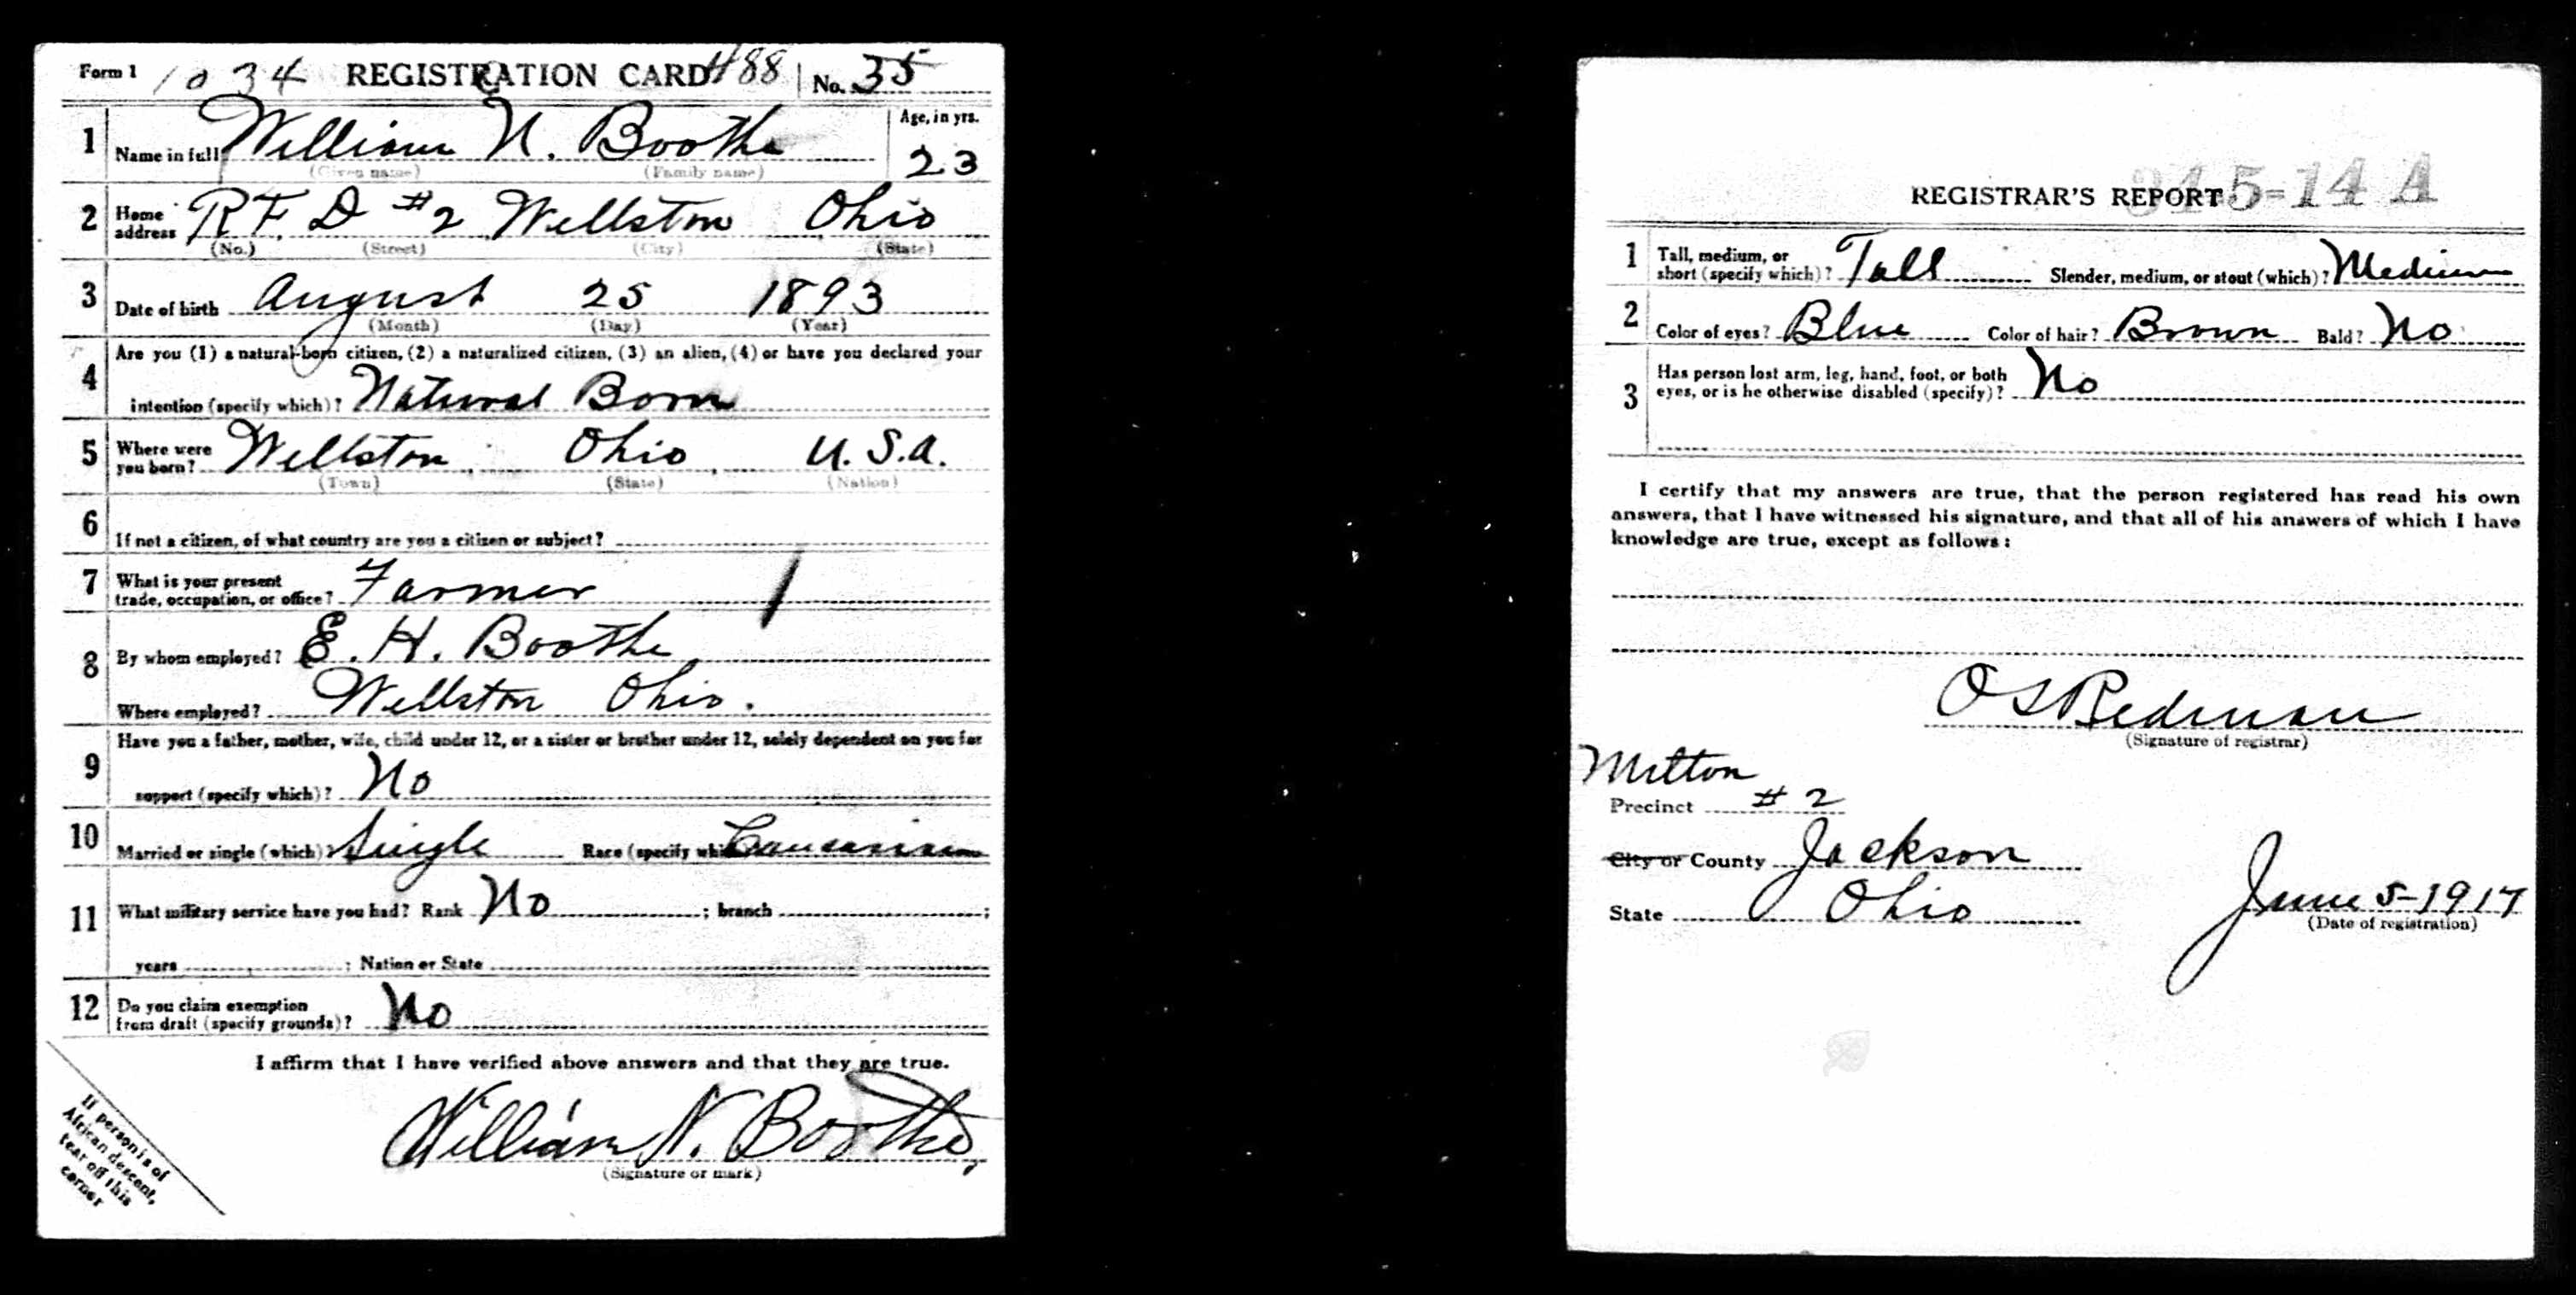 Form 1 1034 REGISTRATION CARD 488 No. 35
1 Name in full William N. Boothe Age, in yrs. 23
(Given name) (Family name)
2 Home address R F. D #2 Wellston Ohio
(No.) (Street) (City) (State)
3 Date of birth August 25 1893
(Month) (Day) (Year)
4 Are you (1) a natural-born citizen, (2) a naturalized citizen, (3) an alien, (4) or have you declared your
intention (specify which)? Natural Born
5 Where were you born? Wellston, Ohio, U. S. A.
(Town) (State) (Nation)
6 If not a citizen, of what country are you a citizen or subject?
7 What is your present
trade, occupation, or office? Farmer
8 By whom employed? E. H. Boothe
Where employed? Wellston Ohio.
9 Have you a father, mother, wife, child under 12, or a sister or brother under 12, solely dependent on you for
support (specify which)? No
10 Married or single (which)? Single Race (specify which) Caucasian
11 What military service have you had? Rank No ; branch ;
years ; Nation or State
12 Do you claim exemption
from draft (specify grounds)? No
I affirm that I have verified above answers and that they are true.
William N. Boothe,
(Signature or mark)
If person is of
African descent,
tear off this
corner
REGISTRAR'S REPORT 5-14 A
1 Tall, medium, or
short (specify which)? Tall Slender, medium, or stout (which)? Medium
2 Color of eyes? Blue Color of hair? Brown Bald? No
3 Has person lost arm, leg, hand, foot, or both
eyes, or is he otherwise disabled (specify)? No
I certify that my answers are true, that the person registered has read his own
answers, that I have witnessed his signature, and that all of his answers of which I have
knowledge are true, except as follows:
O S Redman
(Signature of registrar)
Milton
Precinct # 2
City or County Jackson
State Ohio June 5-1917
(Date of registration)